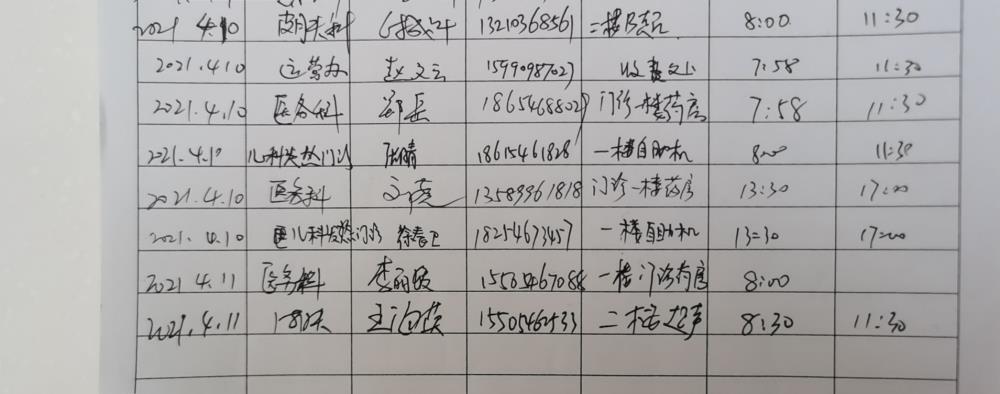 2021 4.10 13210368561 二楼 8:00 11:30
2021.4.10 运营办 赵文云 15990987027 收费 7:58 11:30
2021.4.10 医务科 郑岳 18654688027 门诊一楼药房 7:58 11:30
2021.4.10 儿科发热门诊 张晴 18615461828 一楼自助机 8:00 11:30
2021.4.10 医务科 13589961818 门诊一楼药房 13:30 17:00
2021.4.10 儿科发热门诊 徐春卫 18254673457 一楼自助机 13:30 17:00
2021 4.11 医务科 李丽敏 15505467088 一楼门诊药房 8:00
2021.4.11 15505462533 二楼超声 8:30 11:30